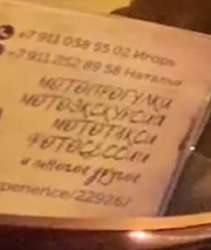 +7 911 038 55 02 Игорь
+7 911 252 89 58 Наталья
МОТОПРОГУЛКИ
МОТОЭКСКУРСИЯ
МОТОТАКСИ
ФОТОСЕССИИ
и многое другое
xperience/22926/